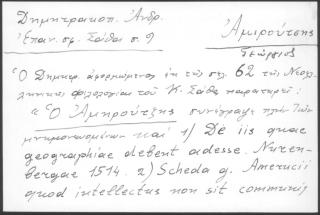 Δημητρακοπ. Ἀνδρ.
Ἐπαν. σφ. Σάθα σ. 9
Ἀμιρούτσης
Γεώργιος
Ὁ Δημητρ. ἀφορμώμενος ἐκ τῆς σελ. 62 τῆς Νεοελ-
ληνικῆς φιλολογίας τοῦ Κ. Σάθα παρατηρεῖ:
"Ὁ Ἀμηρούτζης συνέγραψε πλὴν τῶν
μνημονευομένων καὶ 1) De iis quae
geographiae debent adesse. Nuren-
bergae 1514. 2) Scheda g. Amerucii
quod intellectus non sit communis